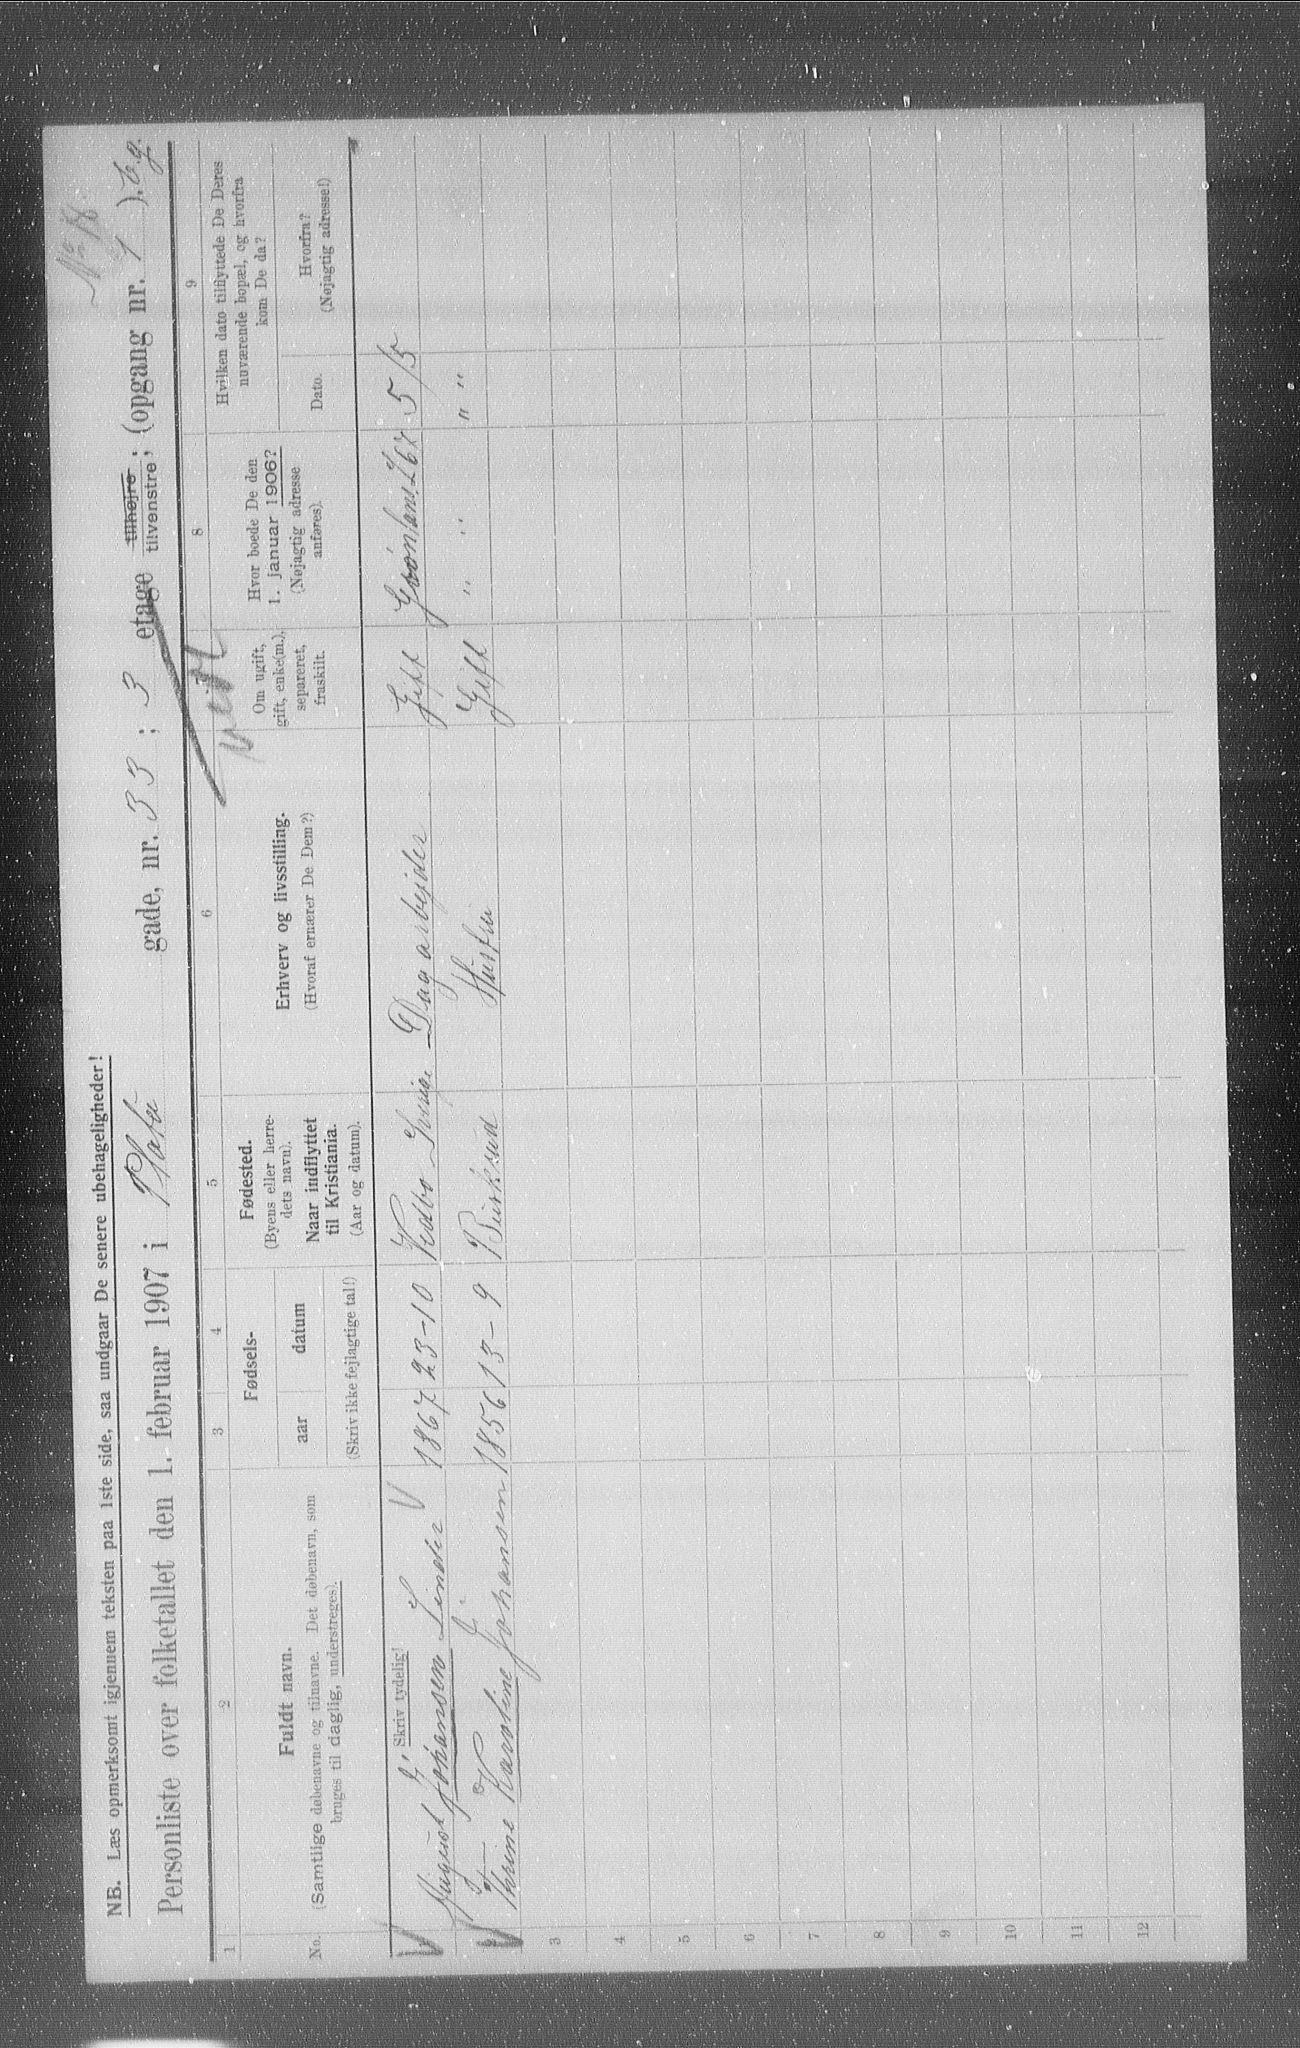 No 18.
NB. Læs opmerksomt igjennem teksten paa 1ste side, saa undgaar De senere ubehageligheder!
Personliste over folketallet den 1. februar 1907 i Platu gade, nr. 33 ; 3 etage tilhøjre tilvenstre ; (opgang nr. 1 ). b.g.
1 2 3 4 5 6 7 8 9
No.
Fuldt navn.
(Samtlige døbenavne og tilnavne. Det døbenavn, som
bruges til daglig, understreges).
Skriv tydelig!
Fødsels-
aar datum
(Skriv ikke fejlagtige tal!)
Fødested.
(Byens eller herre-
dets navn).
Naar indflyttet
til Kristiania.
(Aar og datum).
Erhverv og livsstilling.
(Hvoraf ernærer De Dem?)
Om ugift,
gift, enke(m.),
separeret,
fraskilt.
Hvor boede De den
1. januar 1906?
(Nøjagtig adresse
anføres).
Hvilken dato tilflyttede De Deres
nuværende bopæl, og hvorfra
kom De da?
Dato.
Hvorfra?
(Nøjagtig adresse!)
V August Johansen Linder V 1867 23-10 Kedbo Sverige Dagarbejder Gift Grønlans.L 67 5/5
V 2 Thrine Karoline Johansen 1856 13-9 Buskrud Hustru Gift " " " "
3
4
5
6
7
8
9
10
11
12